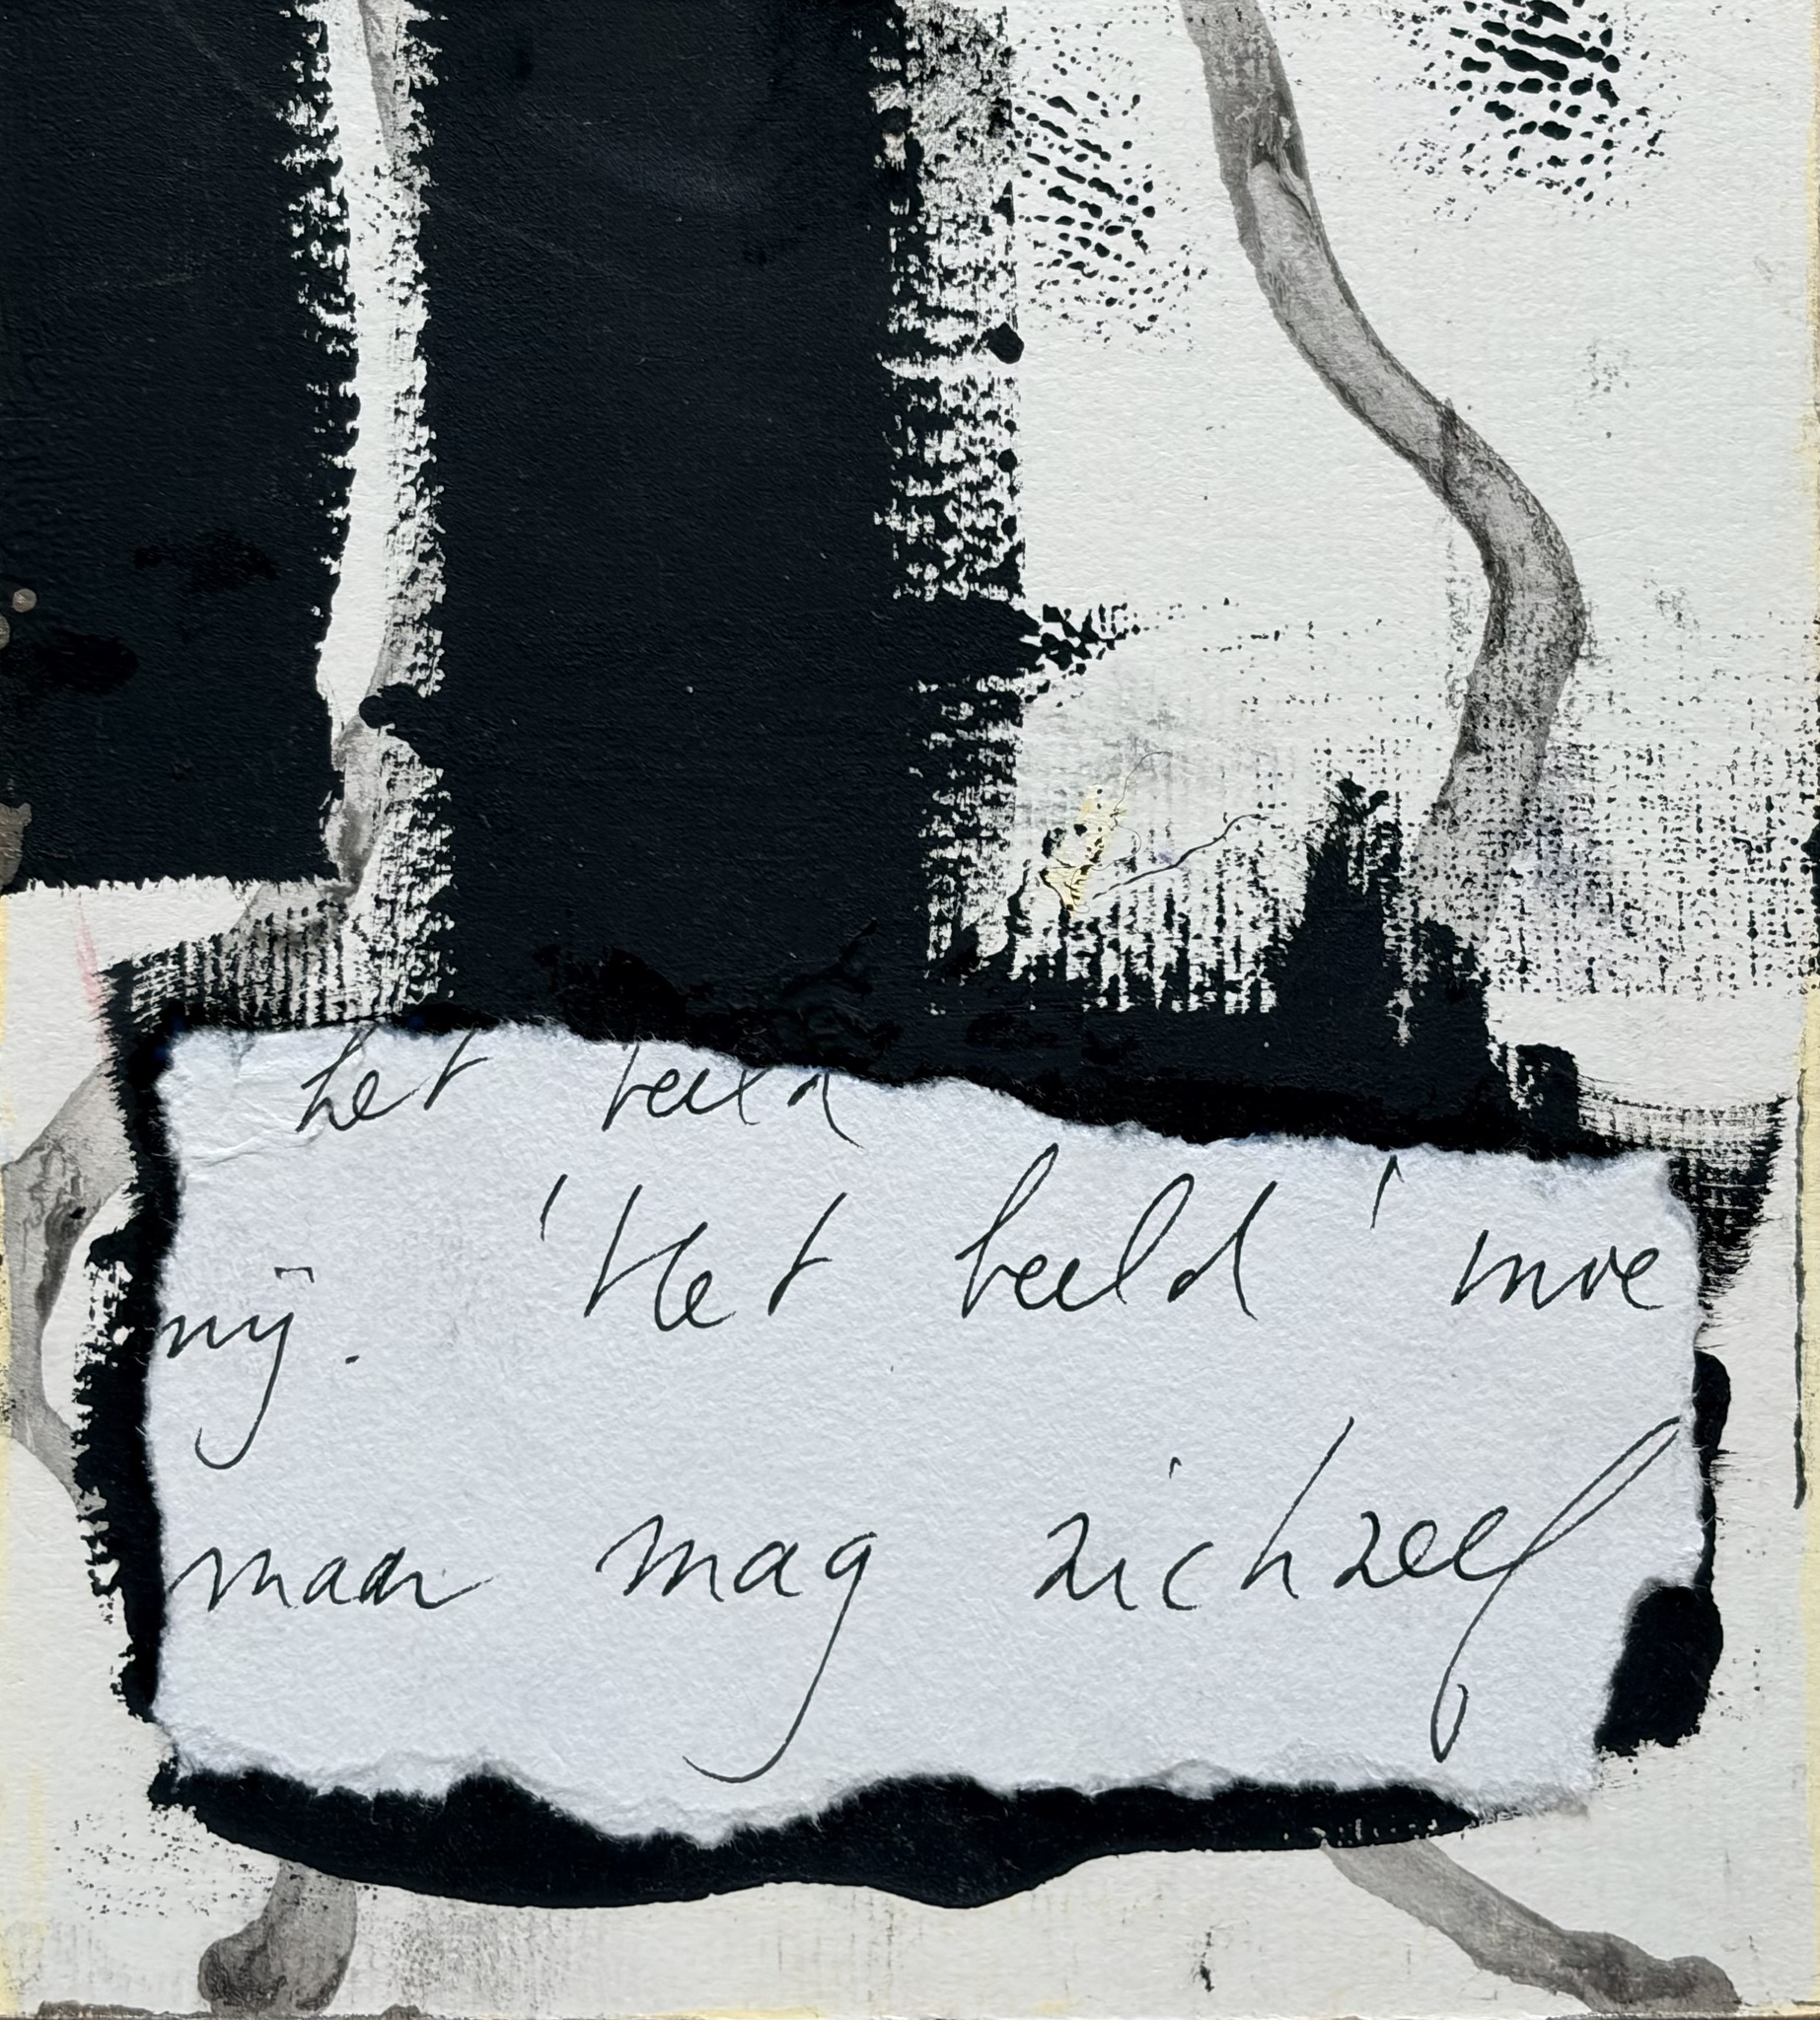 het beeld
mij. 'Het beeld' moe
maar mag zichzelf